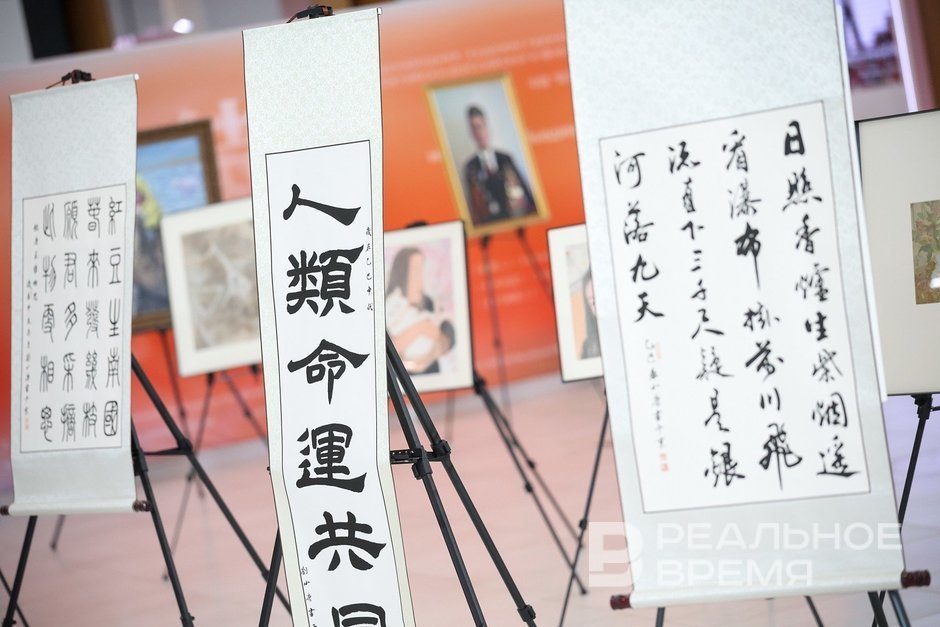 紅豆生南國
春來發幾枝
願君多采擷
此物最相思
人類命運共同
日照香爐生紫烟遥
看瀑布掛前川飛
流直下三千尺疑是銀
河落九天
РЕАЛЬНОЕ
ВРЕМЯ